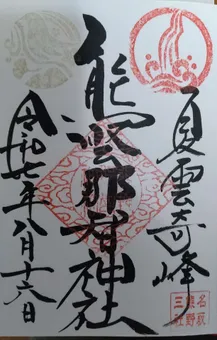 夏雲奇峰
熊野那智神社
令和七年八月十六日
名取
熊野
三社